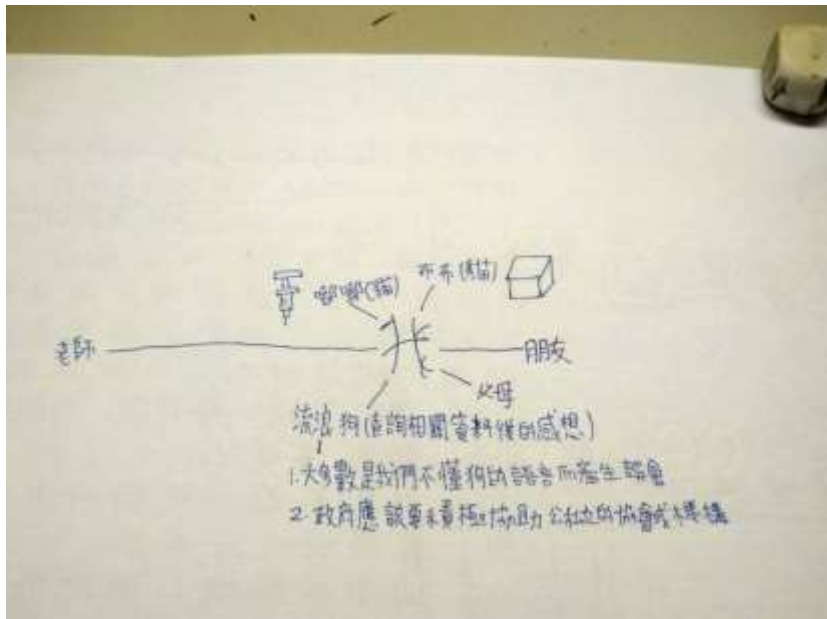 嘟嘟(貓)
布布(貓)
老師
我
朋友
父母
流浪狗(查詢相關資料後的感想)
1.大多數是我們不懂狗的語言而產生誤會
2.政府應該要積極協助公私立的協會或機構